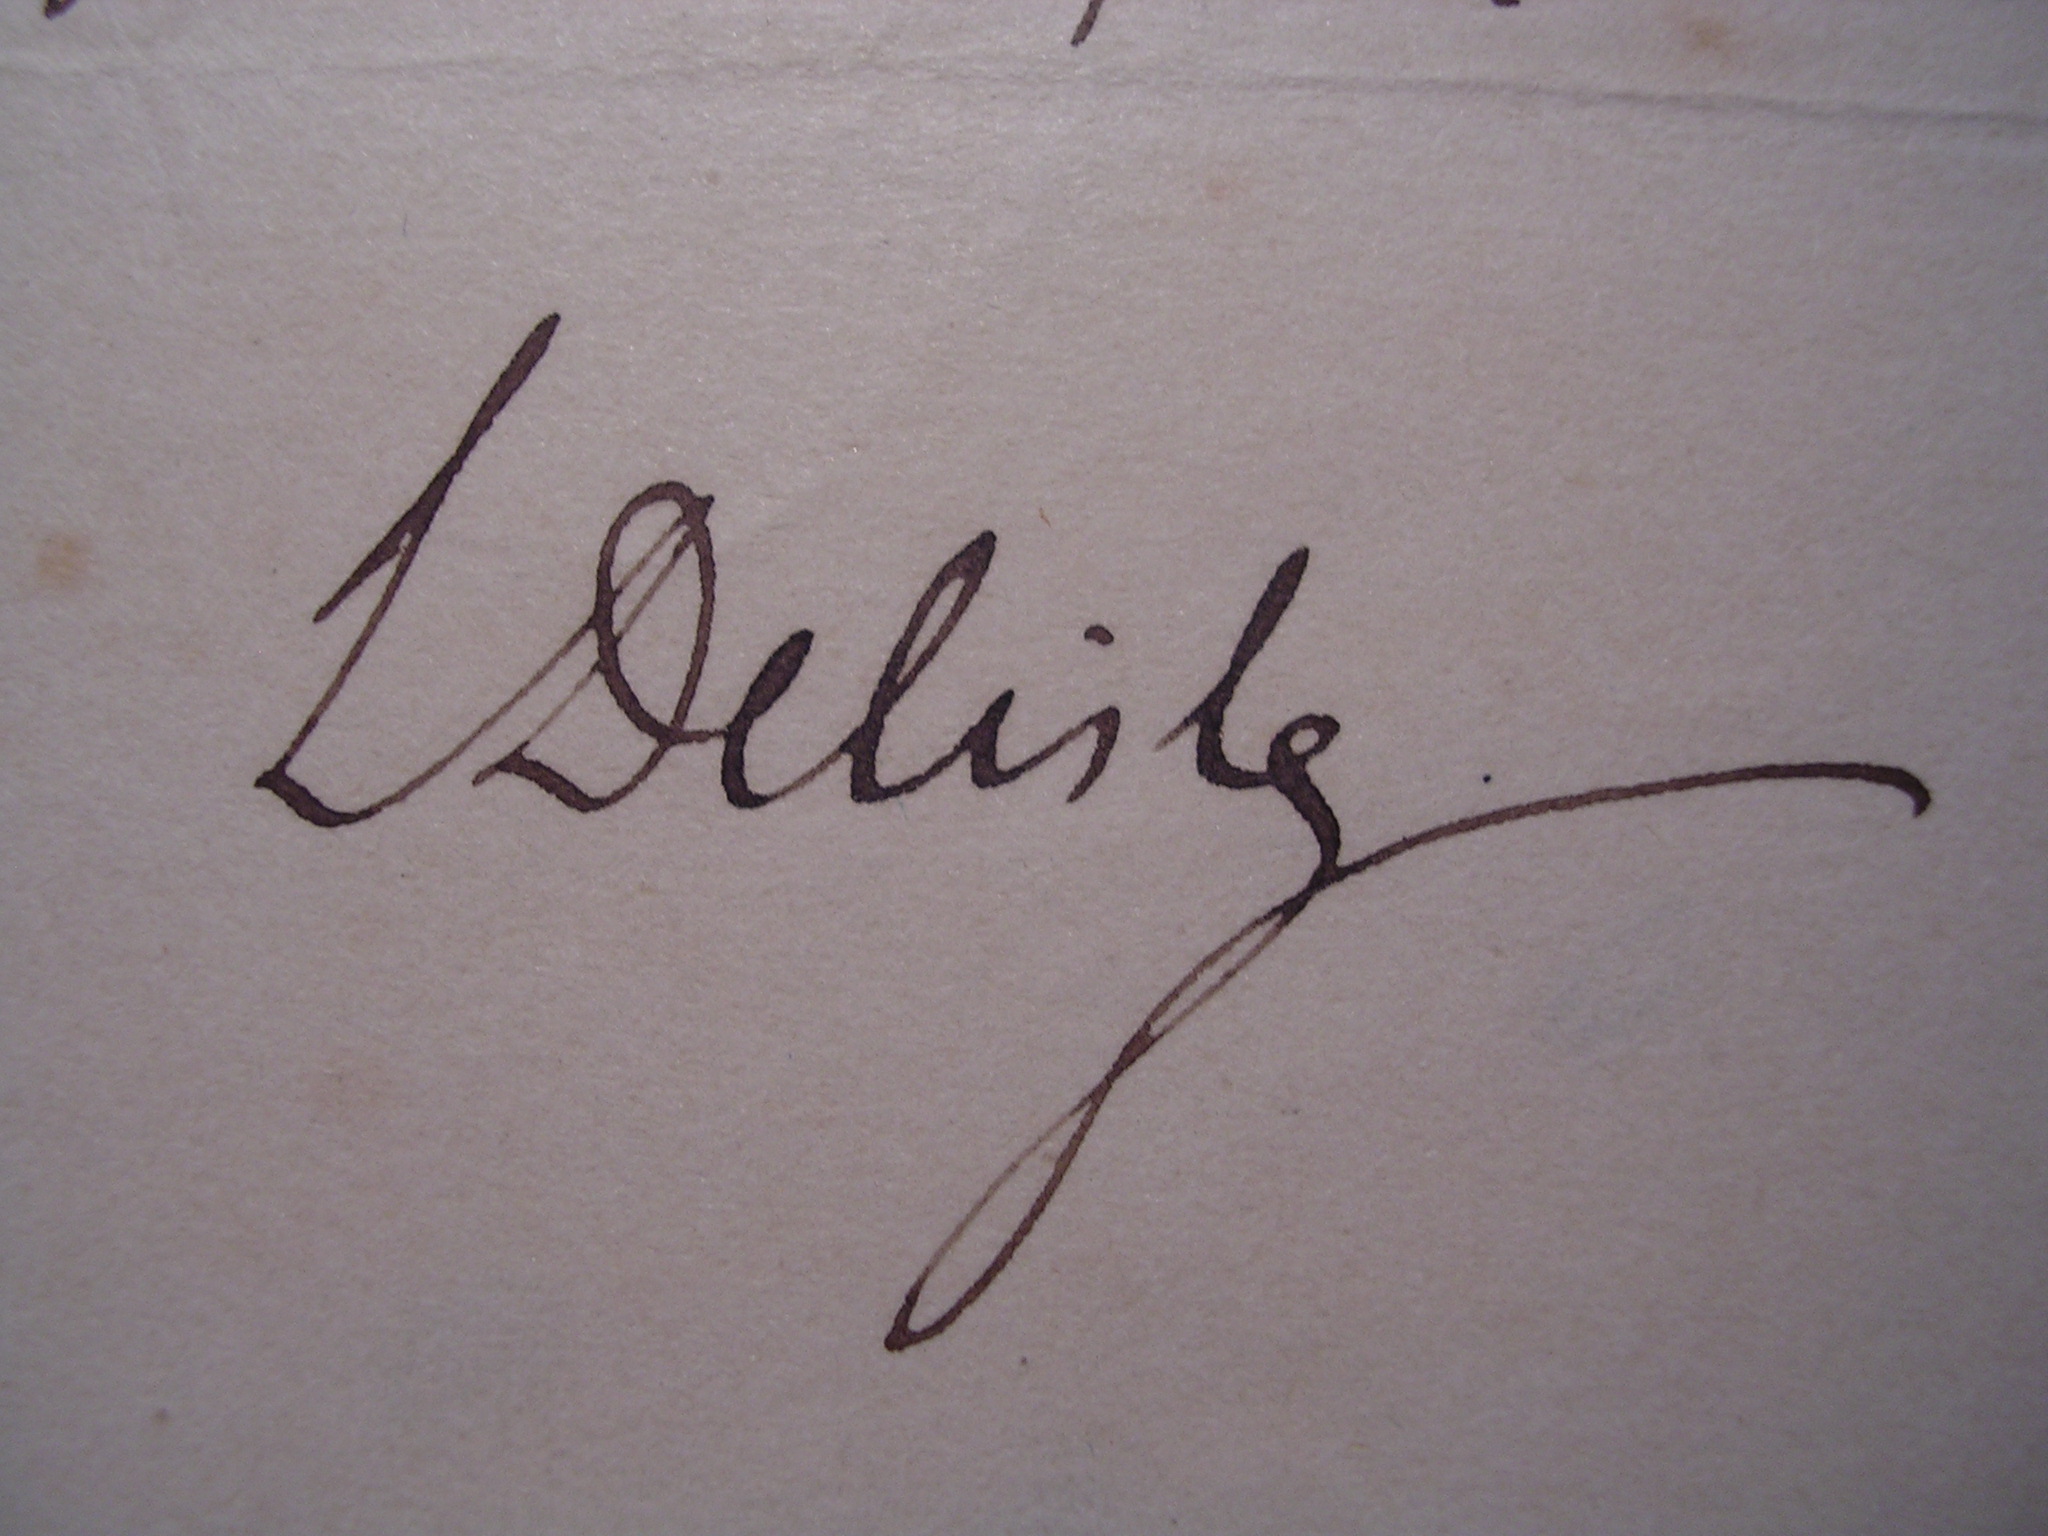 L Delisle